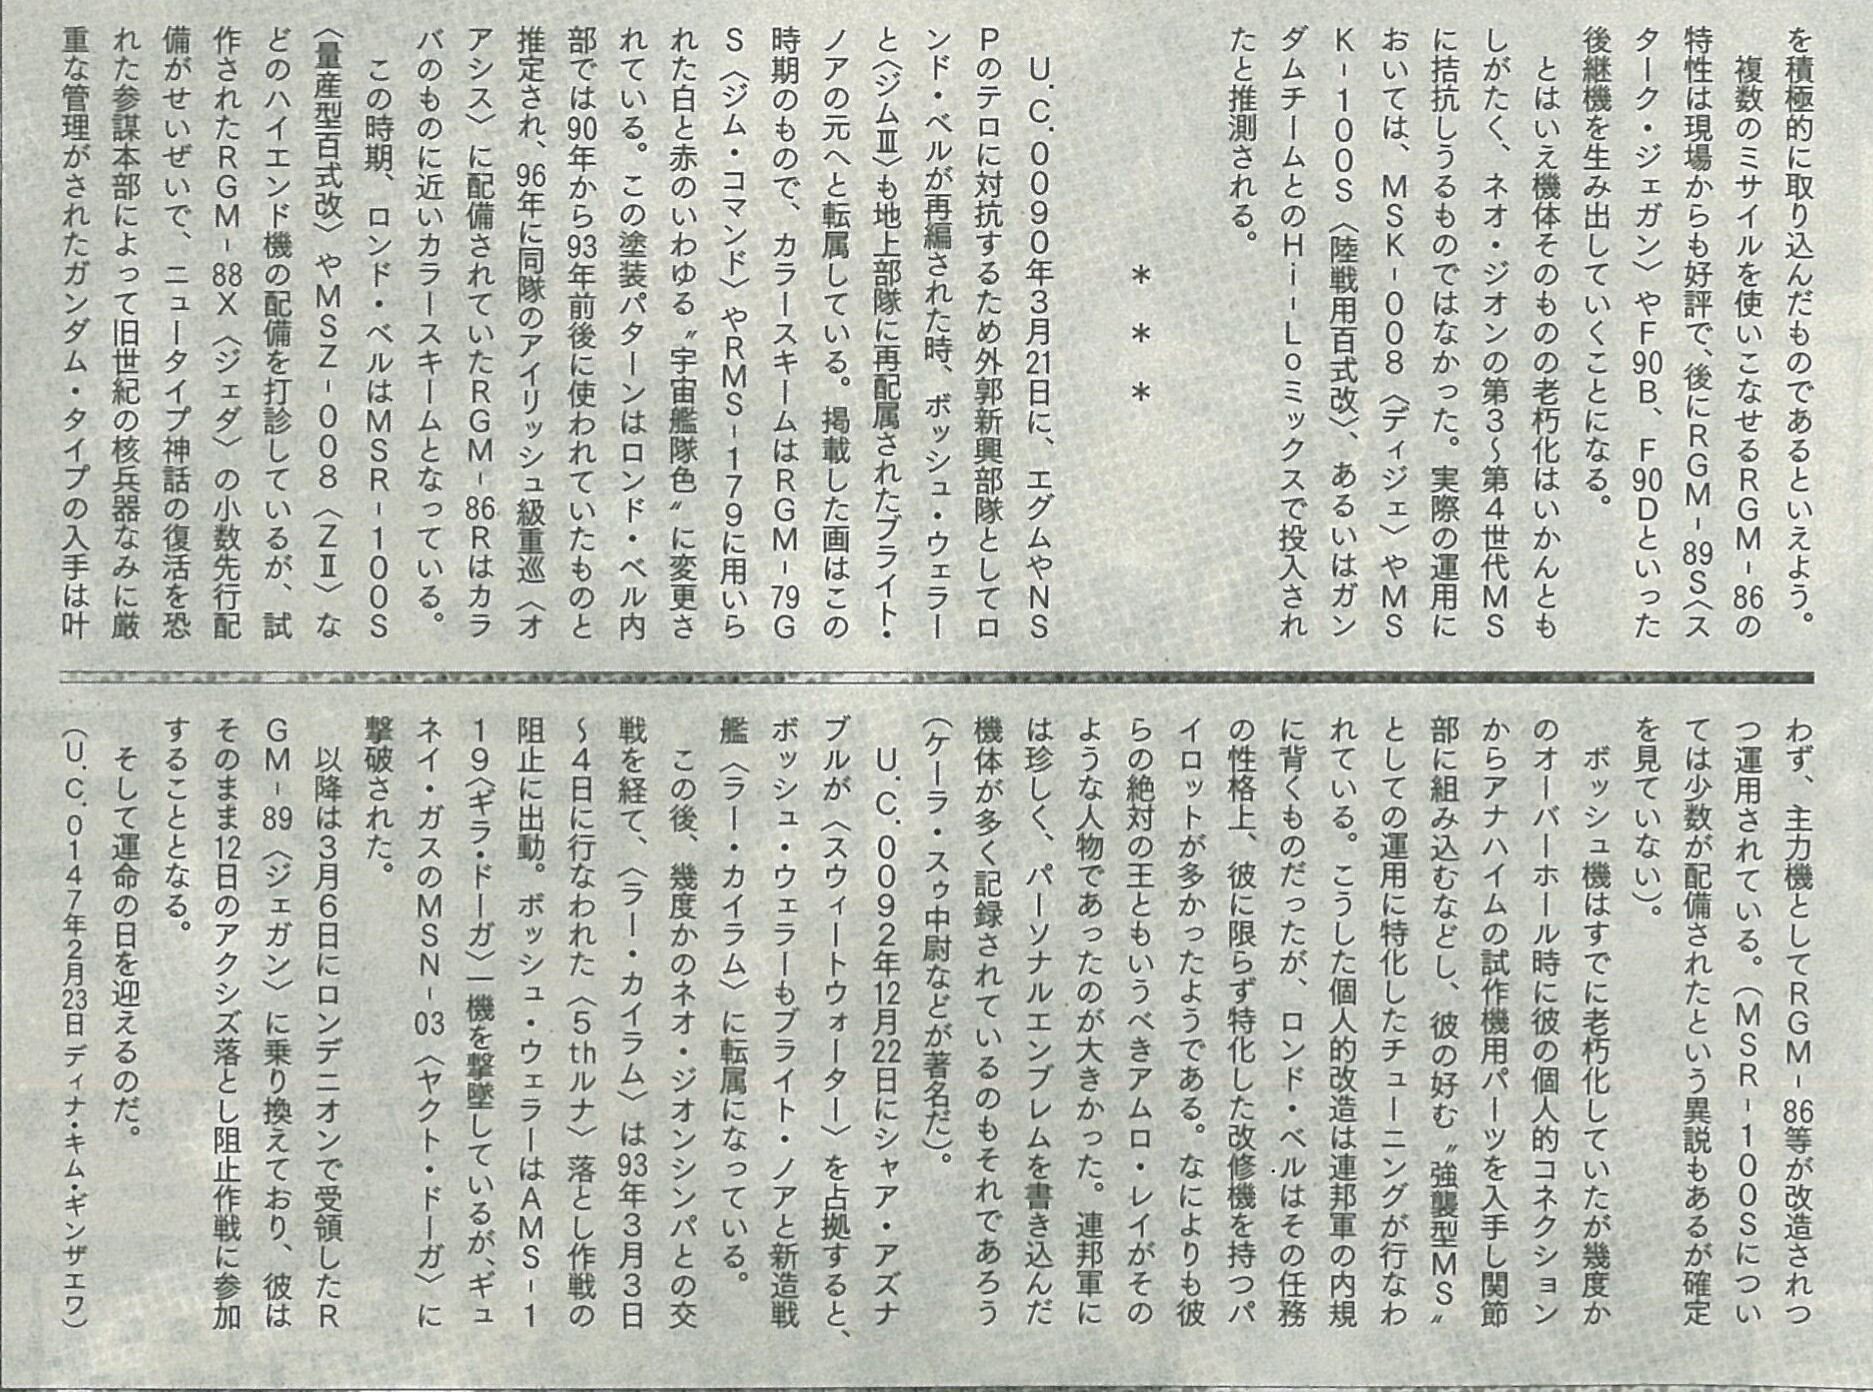 を積極的に取り込んだものであるといえよう。
　複数のミサイルを使いこなせるＲＧＭ-86の
特性は現場からも好評で、後にＲＧＭ-89Ｓ〈ス
ターク・ジェガン〉やＦ90Ｂ、Ｆ90Ｄといった
後継機を生み出していくことになる。
　とはいえ機体そのものの老朽化はいかんとも
しがたく、ネオ・ジオンの第３～第４世代ＭＳ
に拮抗しうるものではなかった。実際の運用に
おいては、ＭＳＫ-００８〈ディジェ〉やＭＳ
Ｋ-１００Ｓ〈陸戦用百式改〉、あるいはガン
ダムチームとのＨｉ-Ｌｏミックスで投入され
たと推測される。
＊　＊　＊
　Ｕ.Ｃ.００９０年３月21日に、エグムやＮＳ
Ｐのテロに対抗するため外郭新興部隊としてロ
ンド・ベルが再編された時、ボッシュ・ウェラー
と〈ジムⅢ〉も地上部隊に再配属されたブライト・
ノアの元へと転属している。掲載した画はこの
時期のもので、カラースキームはＲＧＭ-79Ｇ
Ｓ〈ジム・コマンド〉やＲＭＳ-１７９に用いら
れた白と赤のいわゆる〝宇宙艦隊色〟に変更さ
れている。この塗装パターンはロンド・ベル内
部では90年から93年前後に使われていたものと
推定され、96年に同隊のアイリッシュ級重巡〈オ
アシス〉に配備されていたＲＧＭ-86Ｒはカラ
バのものに近いカラースキームとなっている。
　この時期、ロンド・ベルはＭＳＲ-１００Ｓ
〈量産型百式改〉やＭＳＺ-００８〈ＺⅡ〉な
どのハイエンド機の配備を打診しているが、試
作されたＲＧＭ-88Ｘ〈ジェダ〉の小数先行配
備がせいぜいで、ニュータイプ神話の復活を恐
れた参謀本部によって旧世紀の核兵器なみに厳
重な管理がされたガンダム・タイプの入手は叶
わず、主力機としてＲＧＭ-86等が改造されつ
つ運用されている。（ＭＳＲ-１００Ｓについ
ては少数が配備されたという異説もあるが確定
を見ていない）。
　ボッシュ機はすでに老朽化していたが幾度か
のオーバーホール時に彼の個人的コネクション
からアナハイムの試作機用パーツを入手し関節
部に組み込むなどし、彼の好む〝強襲型ＭＳ〟
としての運用に特化したチューニングが行なわ
れている。こうした個人的改造は連邦軍の内規
に背くものだったが、ロンド・ベルはその任務
の性格上、彼に限らず特化した改修機を持つパ
イロットが多かったようである。なによりも彼
らの絶対の王ともいうべきアムロ・レイがその
ような人物であったのが大きかった。連邦軍に
は珍しく、パーソナルエンブレムを書き込んだ
機体が多く記録されているのもそれであろう
（ケーラ・スゥ中尉などが著名だ）。
　Ｕ.Ｃ.００９２年12月22日にシャア・アズナ
ブルが〈スウィートウォーター〉を占拠すると、
ボッシュ・ウェラーもブライト・ノアと新造戦
艦〈ラー・カイラム〉に転属になっている。
　この後、幾度かのネオ・ジオンシンパとの交
戦を経て、〈ラー・カイラム〉は93年３月３日
～４日に行なわれた〈５ｔｈルナ〉落とし作戦の
阻止に出動。ボッシュ・ウェラーはＡＭＳ-１
１９〈ギラ・ドーガ〉一機を撃墜しているが、ギュ
ネイ・ガスのＭＳＮ-03〈ヤクト・ドーガ〉に
撃破された。
　以降は３月６日にロンデニオンで受領したＲ
ＧＭ-89〈ジェガン〉に乗り換えており、彼は
そのまま12日のアクシズ落とし阻止作戦に参加
することとなる。
　そして運命の日を迎えるのだ。
（Ｕ.Ｃ.０１４７年２月23日 ディナ・キム・ギンザエワ）